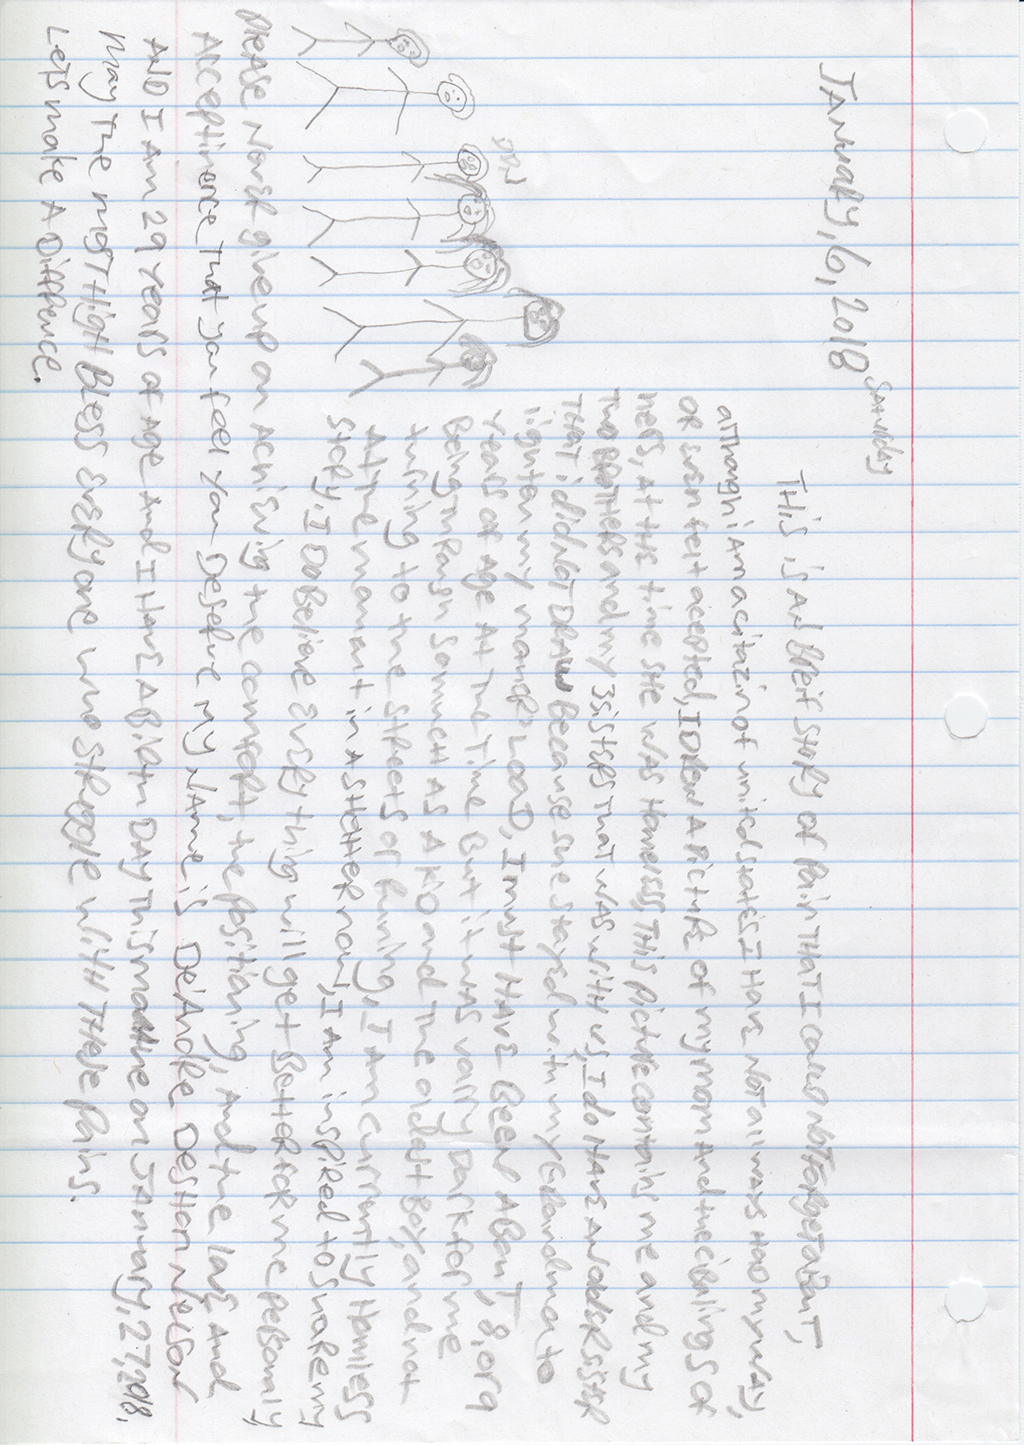 JANUARY, 6, 2018 SATURDAY
THIS is AN BREIf STORY OF PAIN THAT I COULD NOT FORGET ABOUT,
although i AM A citazin of united states I HAVE NOT all ways HAD my way,
or even felt accepted, I DREW A PICTURE OF my mom And the cibilings of
hers, at the time SHE WAS Homeless, THIS picture contains me and my
TWO BROTHERS and my 3 SISTERS THAT WAS WITH US, I do HAVE AN OLDER SISTER
THAT i did NOT DRAW BECAUSE she stayed with my GRANDma to
lighten my mom's LOAD, I must HAVE BEEN ABOUT, 8, or 9
YEARS of Age At THE Time But it was vary DARK for me
Being through so much AS A KID and THE oldest Boy, and not
turning to the streets or Ruining, I Am currently Homless
At the moment in A SHELTER now, I Am inspired to SHARE my
story. I DO Believe every thing will get Better for me personly
please Never give up on Achieving the comfort, the positioning, And the love and
Acceptinence that you feel you Deserve my Name is De'Andre Deshon Nelson
AND I AM 29 YEARS of Age And I HAVE A BIRTH DAY THIS on JANUARY, 27, 2018,
may THE most HIGH BLESS every one who struggle with THESE pains.
Lets make A Diffrence.